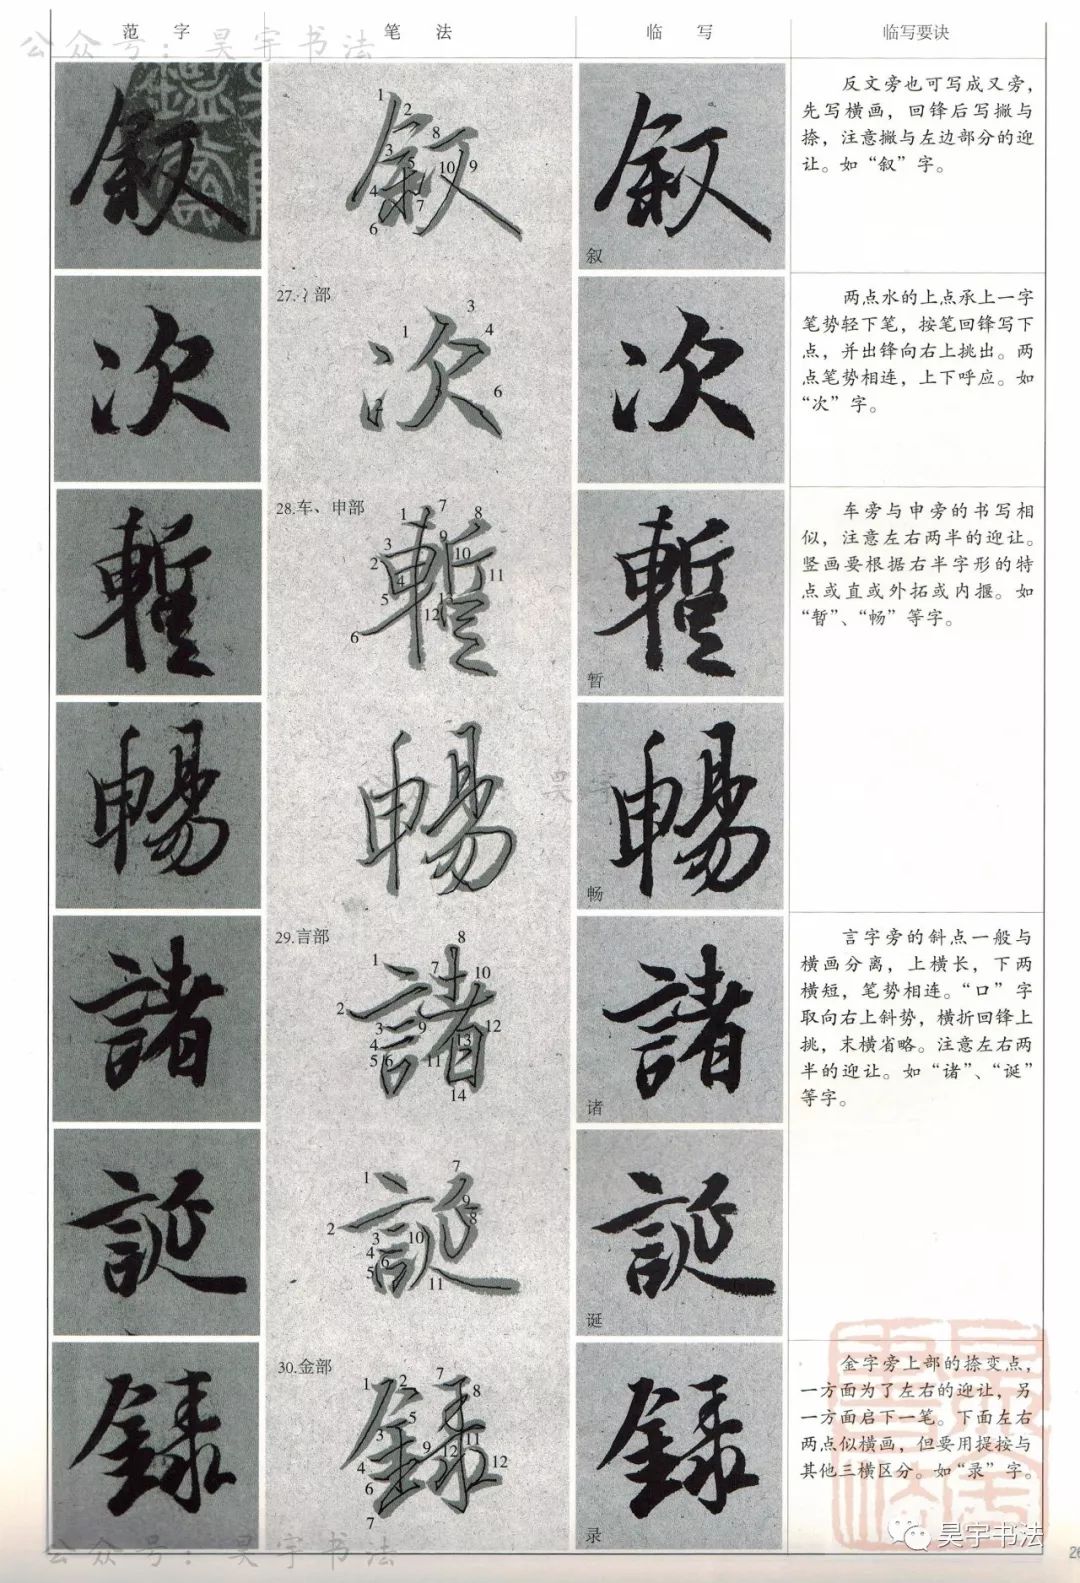 公众号：昊宇书法
范 字
笔 法
临 写
临写要诀
叙
1
2
8
3
5
10
9
4
7
6
叙
叙
反文旁也可写成又旁，
先写横画，回锋后写撇与
捺，注意撇与左边部分的迎
让。如“叙”字。
次
27.冫部
3
1
4
6
次
次
两点水的上点承上一字
笔势轻下笔，按笔回锋写下
点，并出锋向右上挑出。两
点笔势相连，上下呼应。如
“次”字。
暫
28.车、申部
1
7
8
3
9
2
10
4
11
5
12
6
暫
暂
车旁与申旁的书写相
似，注意左右两半的迎让。
竖画要根据右半字形的特
点或直或外拓或内擫。如
“暂”、“畅”等字。
暢
暢
畅
諸
29.言部
8
1
7
10
2
3
9
12
4
13
5
6
11
14
諸
诸
言字旁的斜点一般与
横画分离，上横长，下两
横短，笔势相连。“口”字
取向右上斜势，横折回锋上
挑，末横省略。注意左右两
半的迎让。如“诸”、“诞”
等字。
誕
7
1
9
8
2
3
10
4
6
5
11
誕
诞
録
30.金部
1
2
7
8
5
3
11
9
12
12
4
6
7
録
录
金字旁上部的捺变点，
一方面为了左右的迎让，另
一方面启下一笔。下面左右
两点似横画，但要用提按与
其他三横区分。如“录”字。
公众号：昊宇书法
昊宇书法